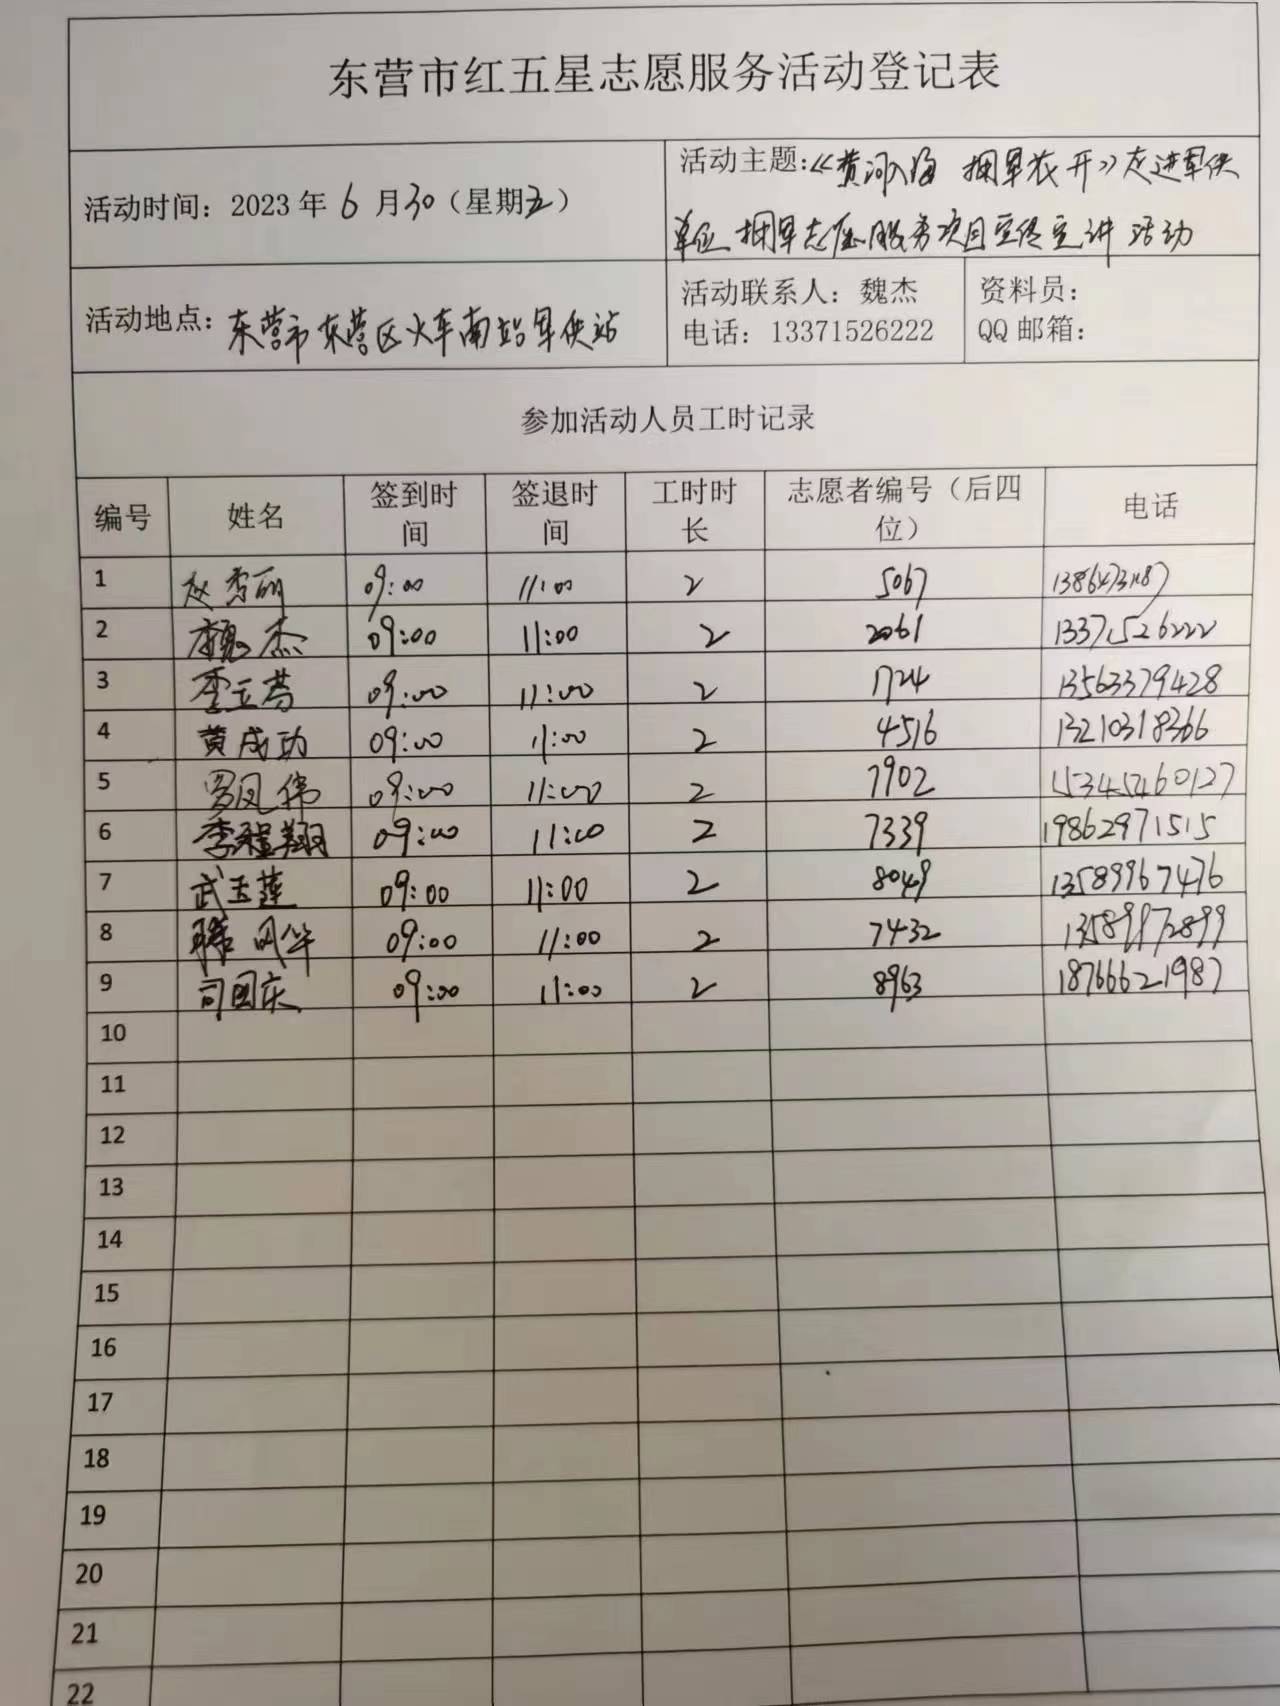 东营市红五星志愿服务活动登记表
活动时间：2023年6月30（星期五）
活动主题：《黄河入海 拥军花开》走进军供
单位 拥军志愿服务项目宣传宣讲活动
活动地点：东营市东营区火车南站军供站
活动联系人：魏杰
电话：13371526222
资料员：
QQ邮箱：
参加活动人员工时记录
编号 姓名 签到时间 签退时间 工时时长 志愿者编号（后四位） 电话
1 赵秀丽 09:00 11:00 2 5067
2 魏杰 09:00 11:00 2 2061 13371526222
3 09:00 11:00 2 1724 13563379428
4 黄成功 09:00 11:00 2 4516 13210318366
5 罗凤伟 09:00 11:00 2 7902 15345460127
6 李程翔 09:00 11:00 2 7339 19862971515
7 武玉莲 09:00 11:00 2 8049 13589967476
8 09:00 11:00 2 7432 13589972899
9 司国庆 09:00 11:00 2 8963 18766621987
10
11
12
13
14
15
16
17
18
19
20
21
22